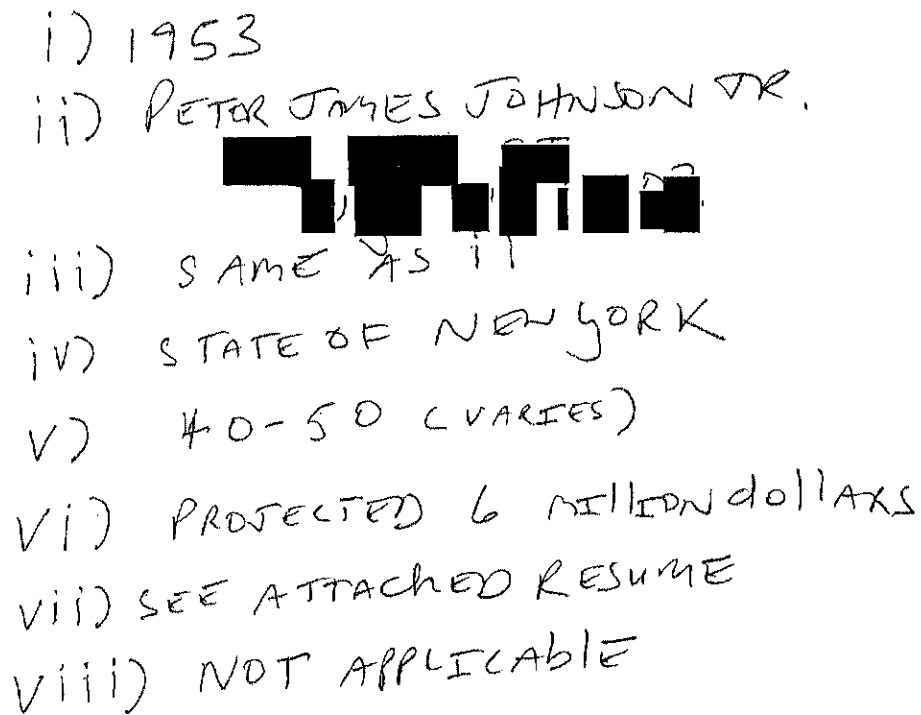 i) 1953
ii) PETER JAMES JOHNSON JR.
iii) SAME AS ii
iv) STATE OF NEW YORK
v) 40-50 (VARIES)
vi) PROJECTED 6 MIllION dollARS
vii) SEE ATTAChED RESUME
viii) NOT APPLICAblE